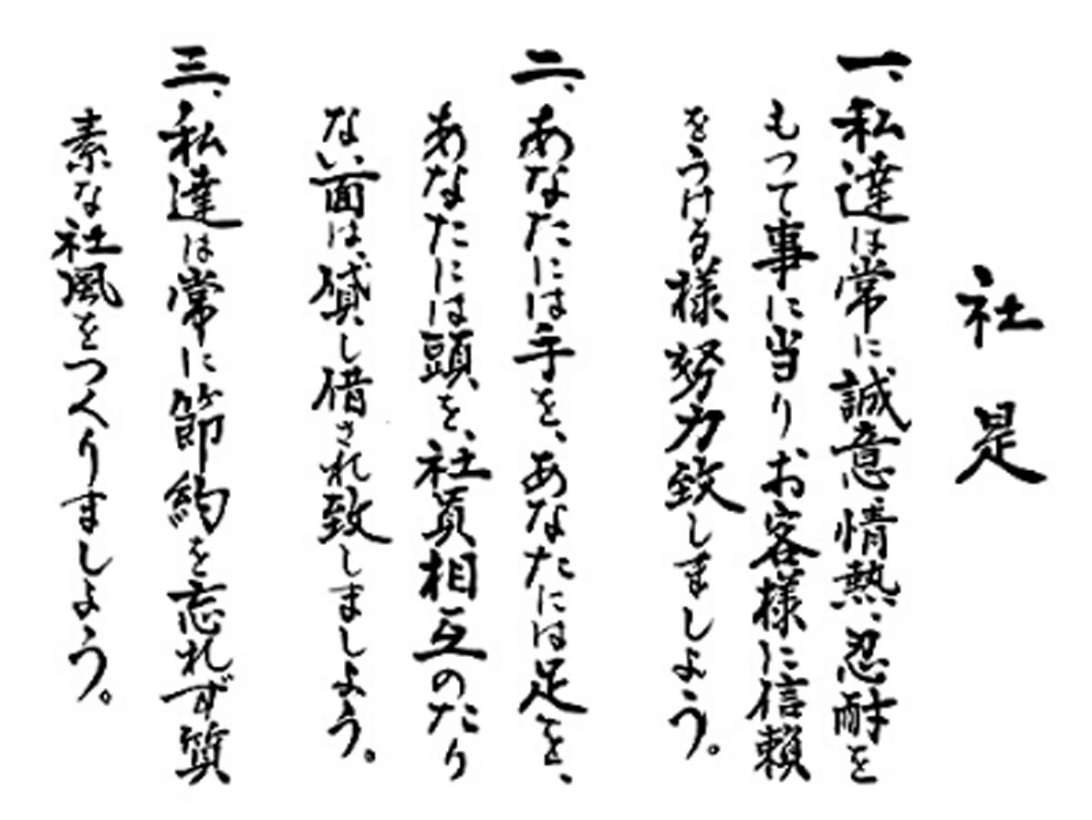 社是
一、私達は常に誠意、情熱、忍耐を
もって事に当りお客様に信頼
をうける様努力致しましよう。
二、あなたには手を、あなたには足を、
あなたには頭を、社員相互のたり
ない面は、貸し借され致しましよう。
三、私達は常に節約を忘れず質
素な社風をつくりましよう。